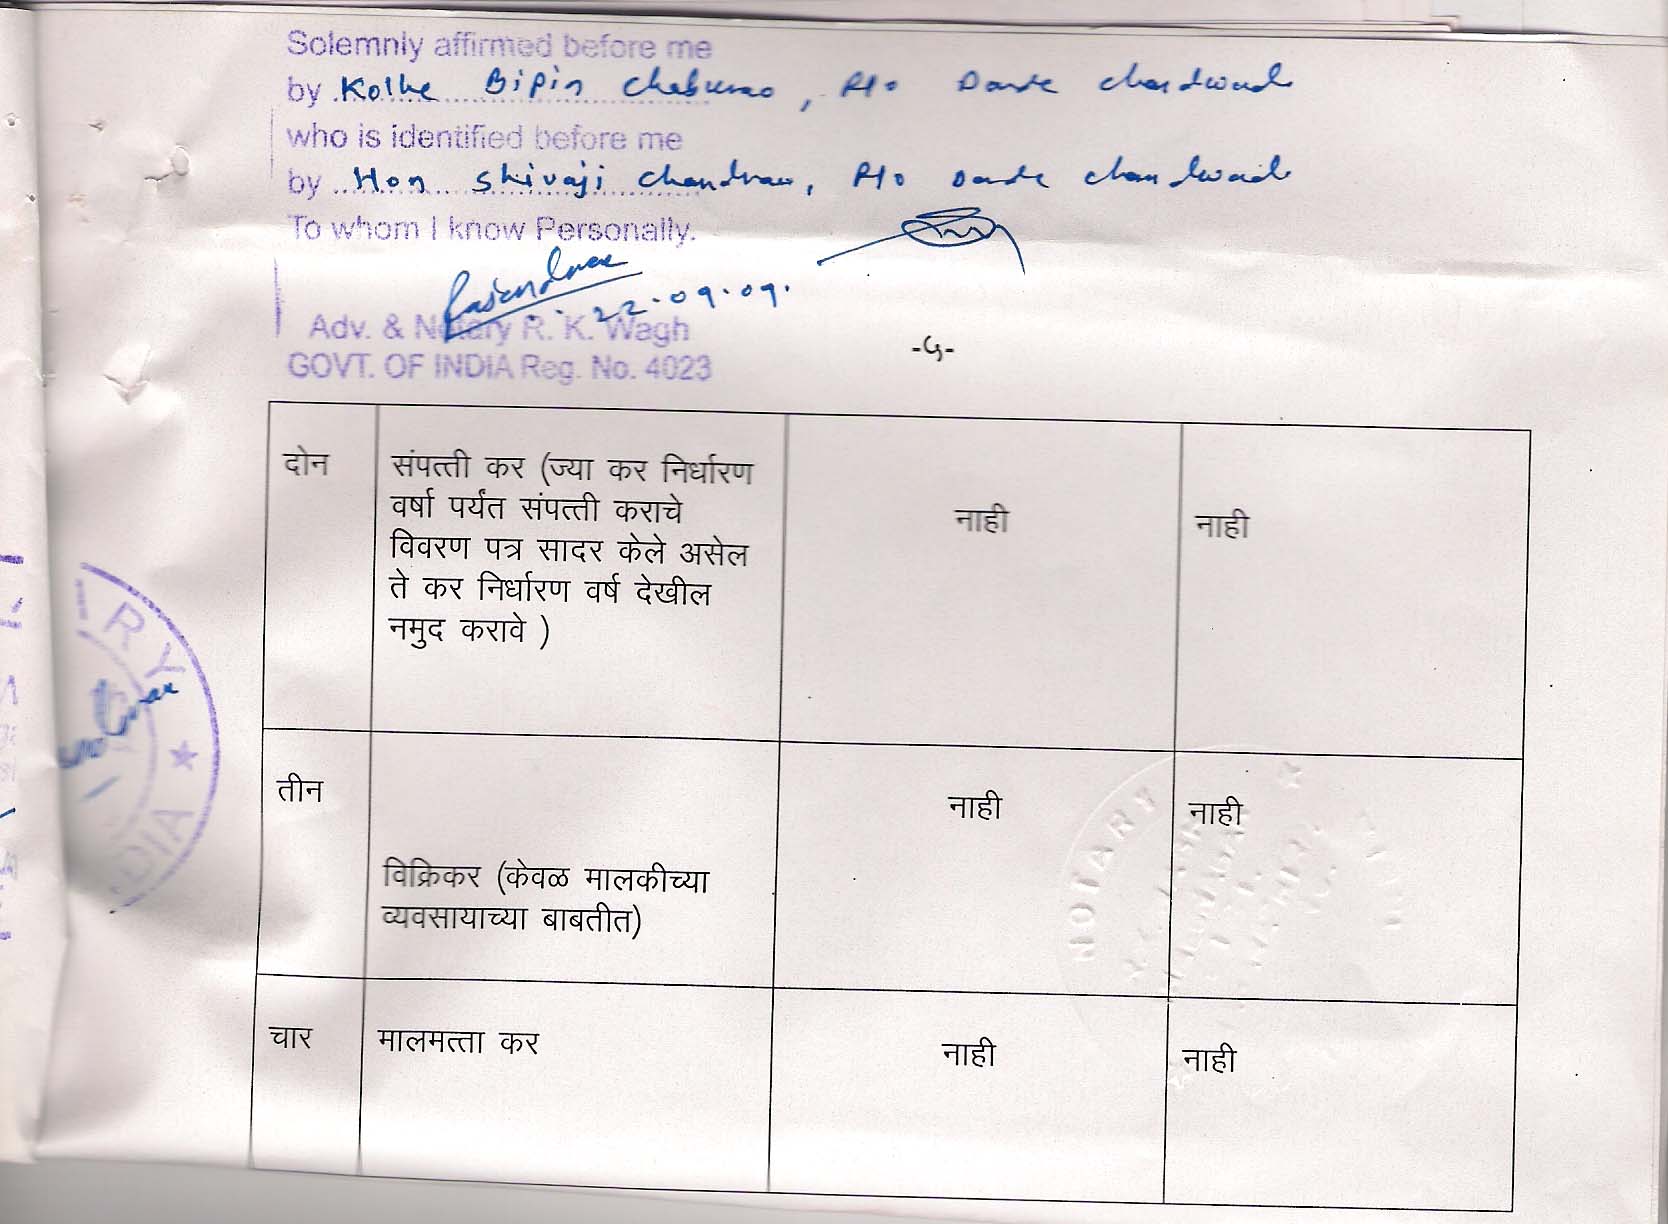 Solemnly affirmed before me
by Kolhe Bipin Chaburao, R/o Darde Chandwad
who is identified before me
by Hon Shivaji Chandrao, R/o Darde Chandwad
To whom I know Personally.
22.09.09.
Adv. & Notary R. K. Wagh
GOVT. OF INDIA Reg. No. 4023
-५-
दोन
संपत्ती कर (ज्या कर निर्धारण
वर्षा पर्यंत संपत्ती कराचे
विवरण पत्र सादर केले असेल
ते कर निर्धारण वर्ष देखील
नमुद करावे )
नाही
नाही
तीन
विक्रिकर (केवळ मालकीच्या
व्यवसायाच्या बाबतीत)
नाही
नाही
चार
मालमत्ता कर
नाही
नाही
NOTARY